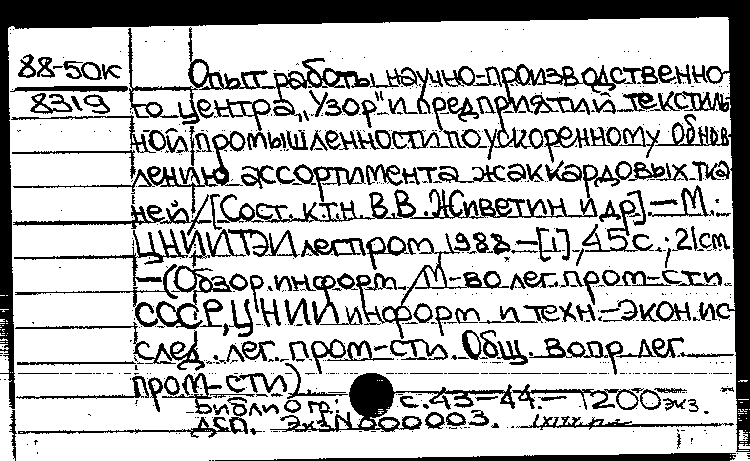 88-50К
8319
Опыт работы научно-производственно-
го центра „Узор" и предприятий текстиль
ной промышленности по ускоренному обнов-
лению ассортимента жаккардовых тка
ней / [Сост. к.т.н. В.В. Живетин и др.]. — М.:
ЦНИИТЭИлегпром, 1988. — [1], 45 с.; 21 cm
— (Обзор. информ. / М-во лег. пром-сти
СССР, ЦНИИ информ. и техн.-экон. ис-
след. лег. пром-сти. Общ. вопр. лег.
пром-сти).
Библиогр.: с. 43-44. — 1200 экз.
ДСП. Экз. N 000003.